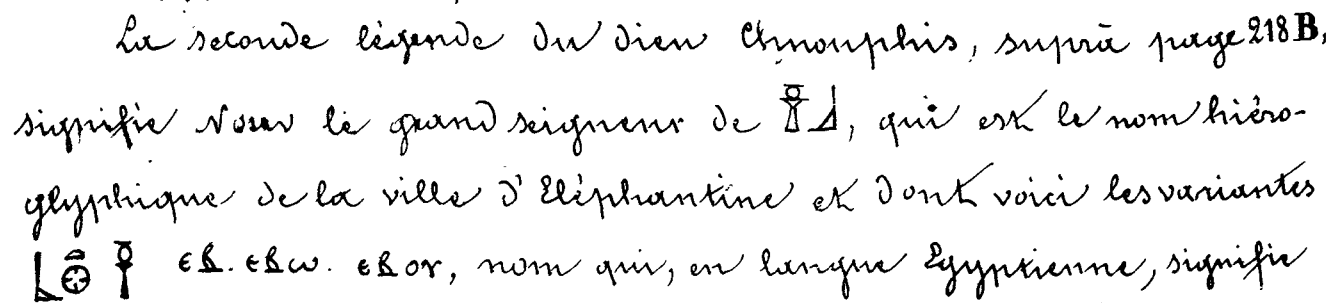 La seconde légende du dieu Chnouphis, suprà page 218 B,
signifie Nouv le grand seigneur de 𓎸𓃀, qui est le nom hiéro-
glyphique de la ville d'Eléphantine et dont voici les variantes
𓃀𓊖𓎸 ⲉⲃ. ⲉⲃⲱ. ⲉⲃⲟⲩ, nom qui, en langue Egyptienne, signifie